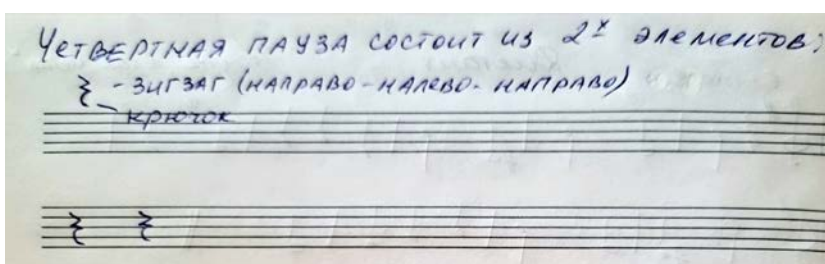 Четвертная пауза состоит из 2х элементов:
- зигзаг (направо-налево-направо)
- крючок